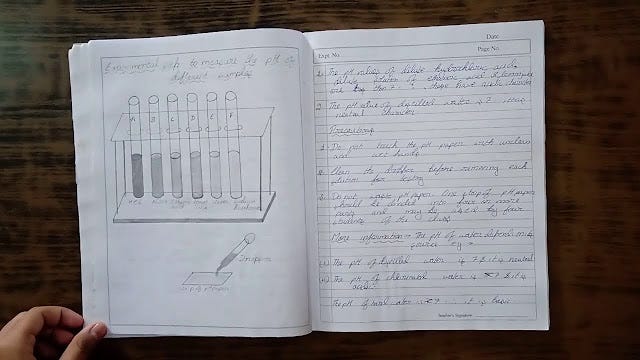 Experimental setup to measure the pH of
different samples
A B C D E F
HCl NaOH Ethanoic acid Lemon juice Water Sodium Bicarbonate
Dropper
pH paper
Date
Expt. No.
Page No.
The pH values of dilute hydrochloric acid,
dilute solution of ethanoic acid & lemon juice
are than 7 these have acidic character
The pH value of distilled water is 7 means
neutral character
Precautions
Do not touch the pH paper with unclean
and wet hands
Clean the dropper before removing each
solution for testing
Do not waste pH paper. One strip of pH paper
should be divided into four or more
parts and may be used by four
students of the class
More information → The pH of water depends on its
source eg →
The pH of distilled water is 7 & it is neutral
The pH of chlorinated water is <7 & it is
acidic
The pH of water is it is basic
Teacher's Signature